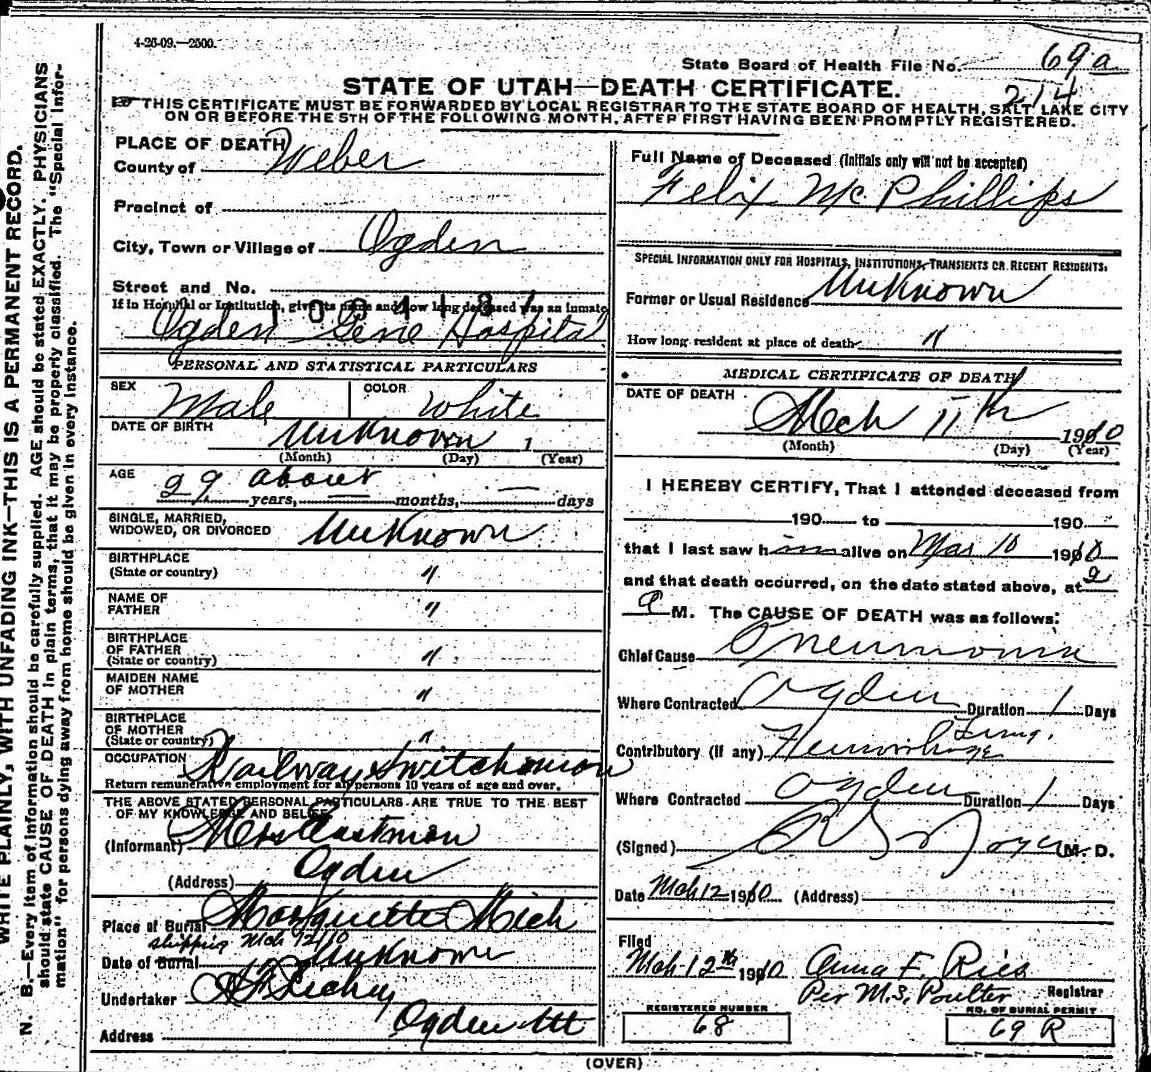 4-26-09.—2500.
State Board of Health File No. 69a
214
STATE OF UTAH—DEATH CERTIFICATE.
THIS CERTIFICATE MUST BE FORWARDED BY LOCAL REGISTRAR TO THE STATE BOARD OF HEALTH, SALT LAKE CITY
ON OR BEFORE THE 5TH OF THE FOLLOWING MONTH, AFTER FIRST HAVING BEEN PROMPTLY REGISTERED.
WRITE PLAINLY, WITH UNFADING INK—THIS IS A PERMANENT RECORD.
N. B.—Every item of information should be carefully supplied. AGE should be stated EXACTLY. PHYSICIANS
should state CAUSE OF DEATH in plain terms, that it may be properly classified. The "Special Infor-
mation" for persons dying away from home should be given in every instance.
PLACE OF DEATH
County of Weber
Precinct of
City, Town or Village of Ogden
Street and No.
If in Hospital or Institution, give its name and how long deceased was an inmate
Ogden Gene Hospital
PERSONAL AND STATISTICAL PARTICULARS
SEX Male COLOR White
DATE OF BIRTH Unknown 1
(Month) (Day) (Year)
AGE 29 about years, — months, — days
SINGLE, MARRIED,
WIDOWED, OR DIVORCED Unknown
BIRTHPLACE
(State or country) "
NAME OF
FATHER "
BIRTHPLACE
OF FATHER
(State or country) "
MAIDEN NAME
OF MOTHER "
BIRTHPLACE
OF MOTHER
(State or country) "
OCCUPATION Railway Switchman
Return remunerative employment for all persons 10 years of age and over.
THE ABOVE STATED PERSONAL PARTICULARS ARE TRUE TO THE BEST
OF MY KNOWLEDGE AND BELIEF
(Informant) Mrs Eastman
(Address) Ogden
Place of Burial Marquette Mich
shipping Mch 12/10
Date of Burial Unknown
Undertaker
Address Ogden Ut
Full Name of Deceased (Initials only will not be accepted)
Felix McPhillips
SPECIAL INFORMATION ONLY FOR HOSPITALS, INSTITUTIONS, TRANSIENTS OR RECENT RESIDENTS:
Former or Usual Residence Unknown
How long resident at place of death "
MEDICAL CERTIFICATE OF DEATH
DATE OF DEATH
Mch 11th 1910
(Month) (Day) (Year)
I HEREBY CERTIFY, That I attended deceased from
190 to 190
that I last saw him alive on Mar 10 1910
and that death occurred, on the date stated above, at 2
a M. The CAUSE OF DEATH was as follows:
Chief Cause Pneumonia
Where Contracted Ogden Duration 1 Days
Lung.
Contributory (if any) Hemorrhage
Where Contracted Ogden Duration 1 Days
(Signed) M. D.
Date Mch 12 1910 (Address)
Filed
Mch 12th 1910 Anna F. Ries
Per M.S. Poulter Registrar
REGISTERED NUMBER
68
NO. OF BURIAL PERMIT
69 R
(OVER)